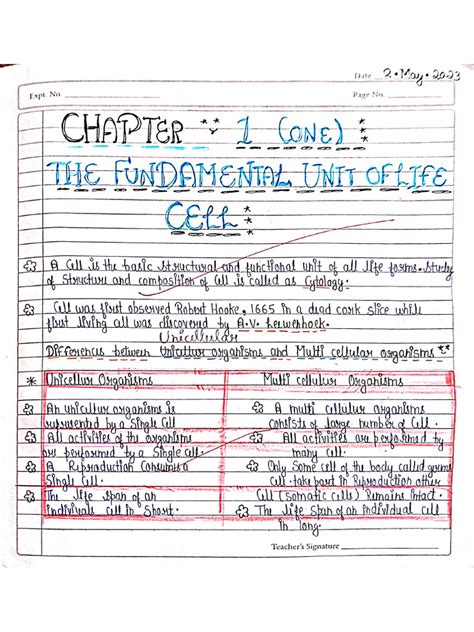 Date 2 • May • 2023
Expt. No.
Page No.
CHAPTER 1 (ONE)
THE FUNDAMENTAL UNIT OF LIFE
CELL
A Cell is the basic structural and functional unit of all life forms. Study
of Structure and composition of Cell is called as Cytology.
Cell was first observed Robert Hooke, 1665 in a dead cork slice while
first living all was discovered by A.V. leewenhoek.
Unicellular
Differences between Unicellur organisms and Multi cellular organisms
* Unicellur Organisms
An unicellur organisms is
represented by a Single Cell
All activities of the organisms
are performed by a Single Cell.
A Reproduction Consums a
Single Cell.
The life span of an
individuals cell in Short.
Multi cellular Organisms
A multi cellular organisms
Consists of large number of Cell.
All activities are performed by
many Cell.
Only Some cell of the body called germs
Cell take part in Reproduction other
Cell (Somatic cells) Remains intact.
The life Span of an individual cell
in long.
Teacher's Signature